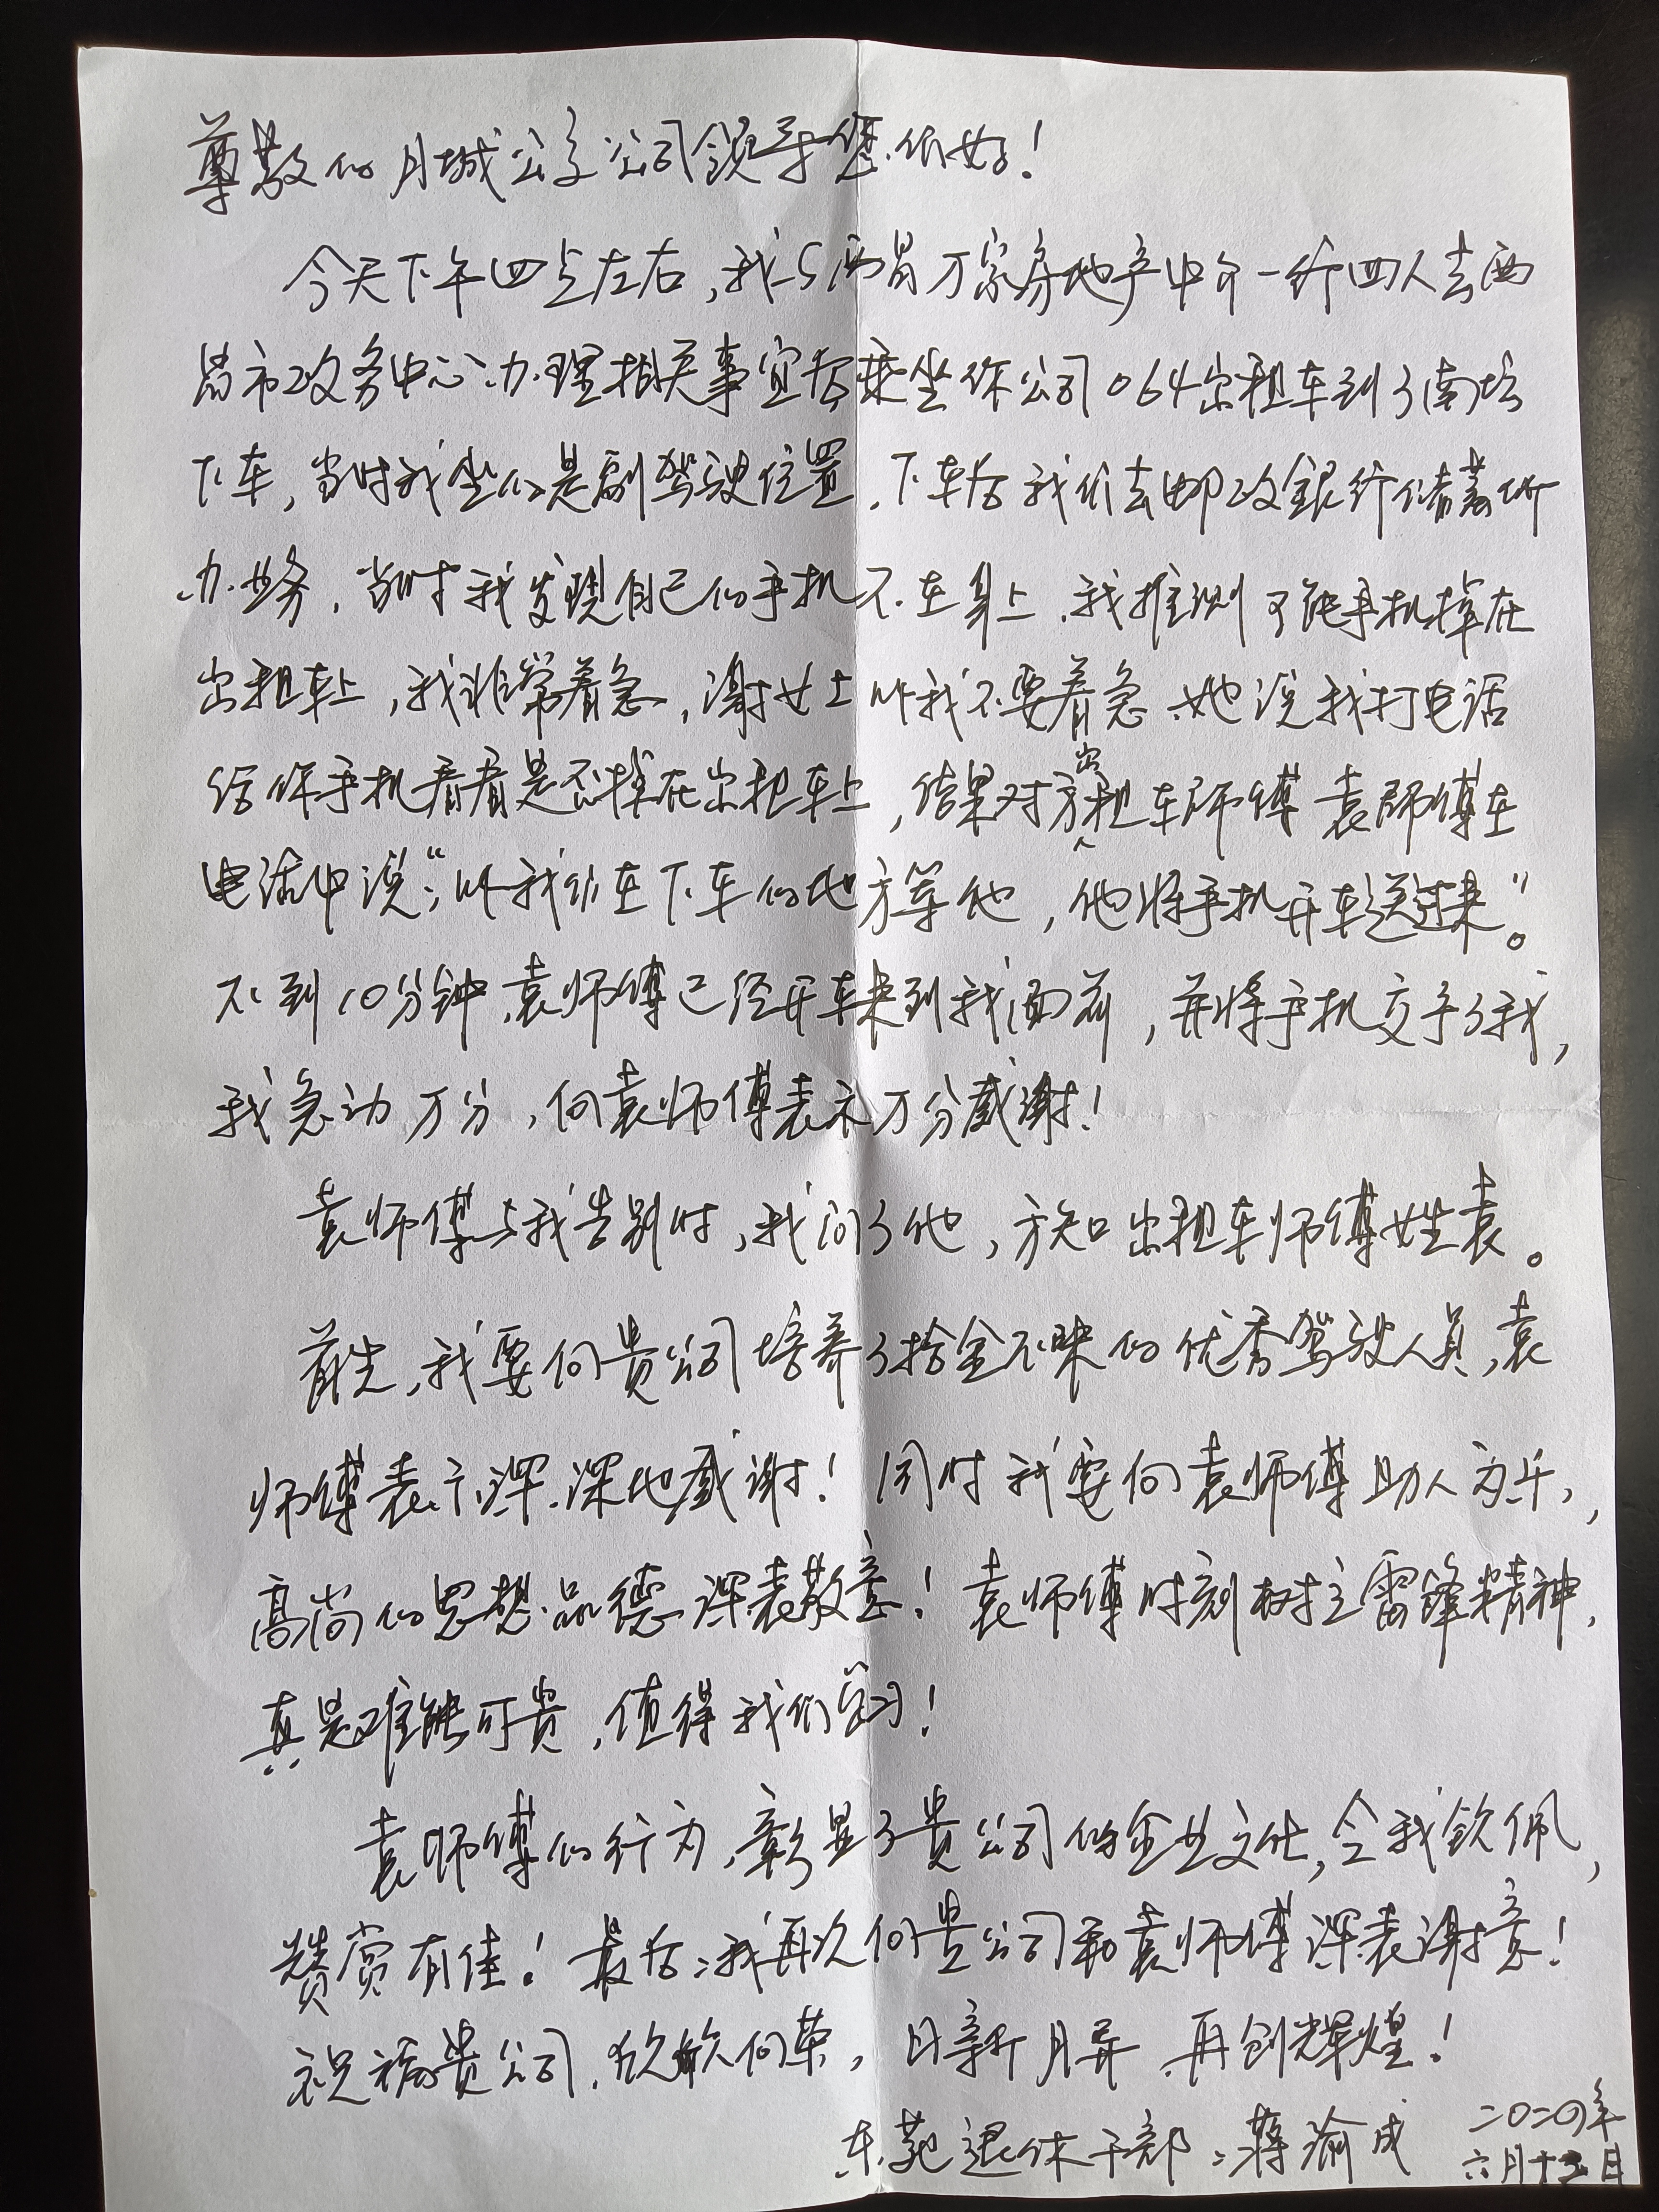 尊敬的月城公交公司领导您们好!
今天下午四点左右,我与西昌万家房地产中介一行四人去西
昌市政务中心办理相关事宜后乘坐你公司064出租车到了南坛
下车,当时我坐的是副驾驶位置,下车后我们去邮政银行储蓄所
办业务,当时我发现自己的手机不在身上,我推测可能手机掉在
出租车上,我非常着急,谢女士叫我不要着急,她说我打电话
给你手机看看是否掉在出租车上,结果对方出租车师傅袁师傅在
电话中说:“叫我们在下车的地方等他,他将手机开车送过来”。
不到10分钟,袁师傅已经开车来到我面前,并将手机交予了我,
我急动万分,向袁师傅表示万分感谢!
袁师傅与我告别时,我问了他,方知出租车师傅姓袁。
首先,我要向贵公司培养了拾金不昧的优秀驾驶人员,袁
师傅表示深深地感谢!同时我要向袁师傅助人为乐,
高尚的思想品德深表敬意!袁师傅时刻树立雷锋精神,
真是难能可贵,值得我们学习!
袁师傅的行为,彰显了贵公司的企业文化,令我钦佩,
赞赏有佳!最后:我再次向贵公司和袁师傅深表谢意!
祝福贵公司,欣欣向荣,日新月异,再创辉煌!
东苑退休干部:蒋渝成
二〇二〇年
六月十五日